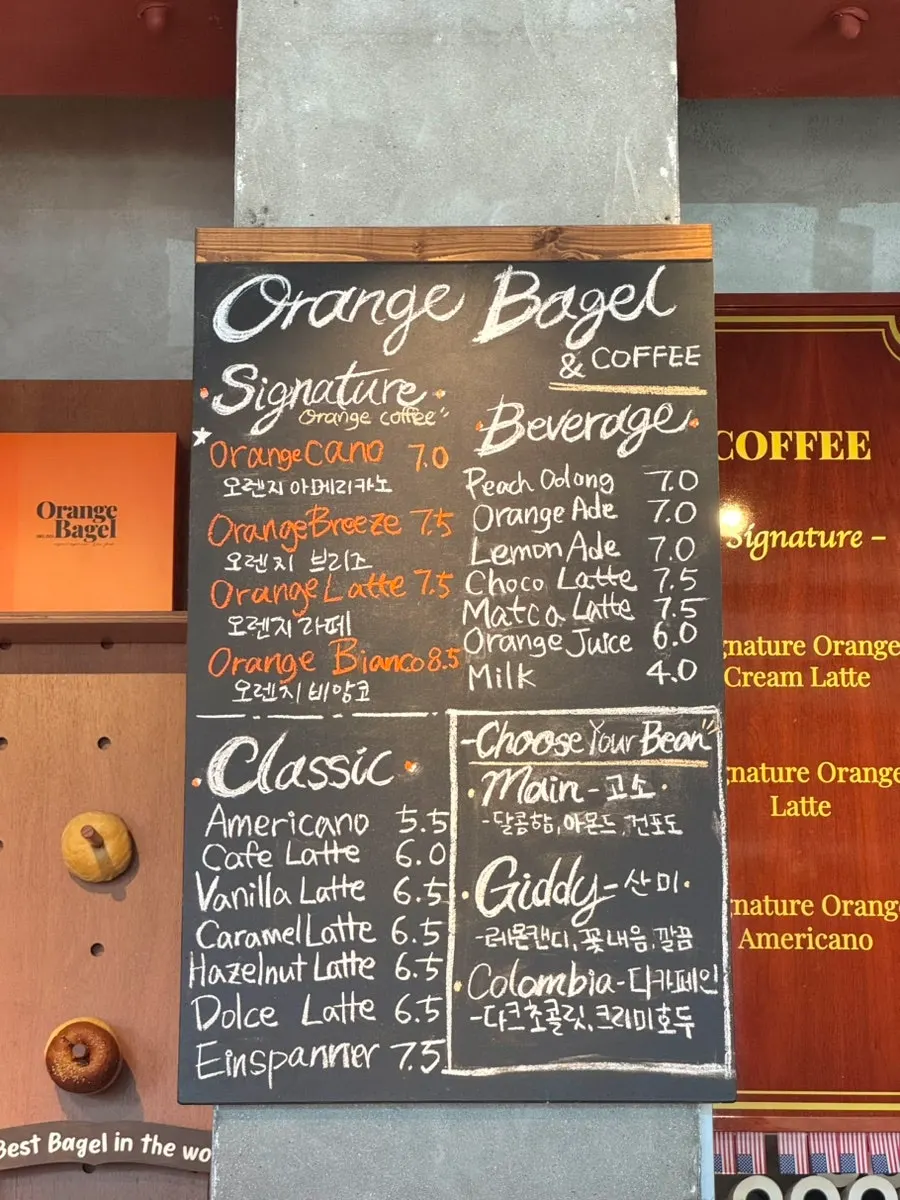 Orange Bagel
& COFFEE
Signature
Orange coffee"
Orange Cano 7.0
오렌지 아메리카노
Orange Breeze 7.5
오렌지 브리즈
Orange Latte 7.5
오렌지 라떼
Orange Bianco 8.5
오렌지 비앙코
Classic
Americano 5.5
Cafe Latte 6.0
Vanilla Latte 6.5
Caramel Latte 6.5
Hazelnut Latte 6.5
Dolce Latte 6.5
Einspanner 7.5
Beverage
Peach Oolong 7.0
Orange Ade 7.0
Lemon Ade 7.0
Choco Latte 7.5
Matca Latte 7.5
Orange Juice 6.0
Milk 4.0
-Choose Your Bean"
Main - 고소
-달콤함, 아몬드, 건포도
Giddy - 산미
-레몬캔디, 꽃내음, 깔끔
Colombia - 디카페인
-다크초콜릿, 크리미호두
Orange
Bagel
Best Bagel in the wo
COFFEE
Signature –
gnature Orange
Cream Latte
gnature Orange
Latte
nature Orang
Americano